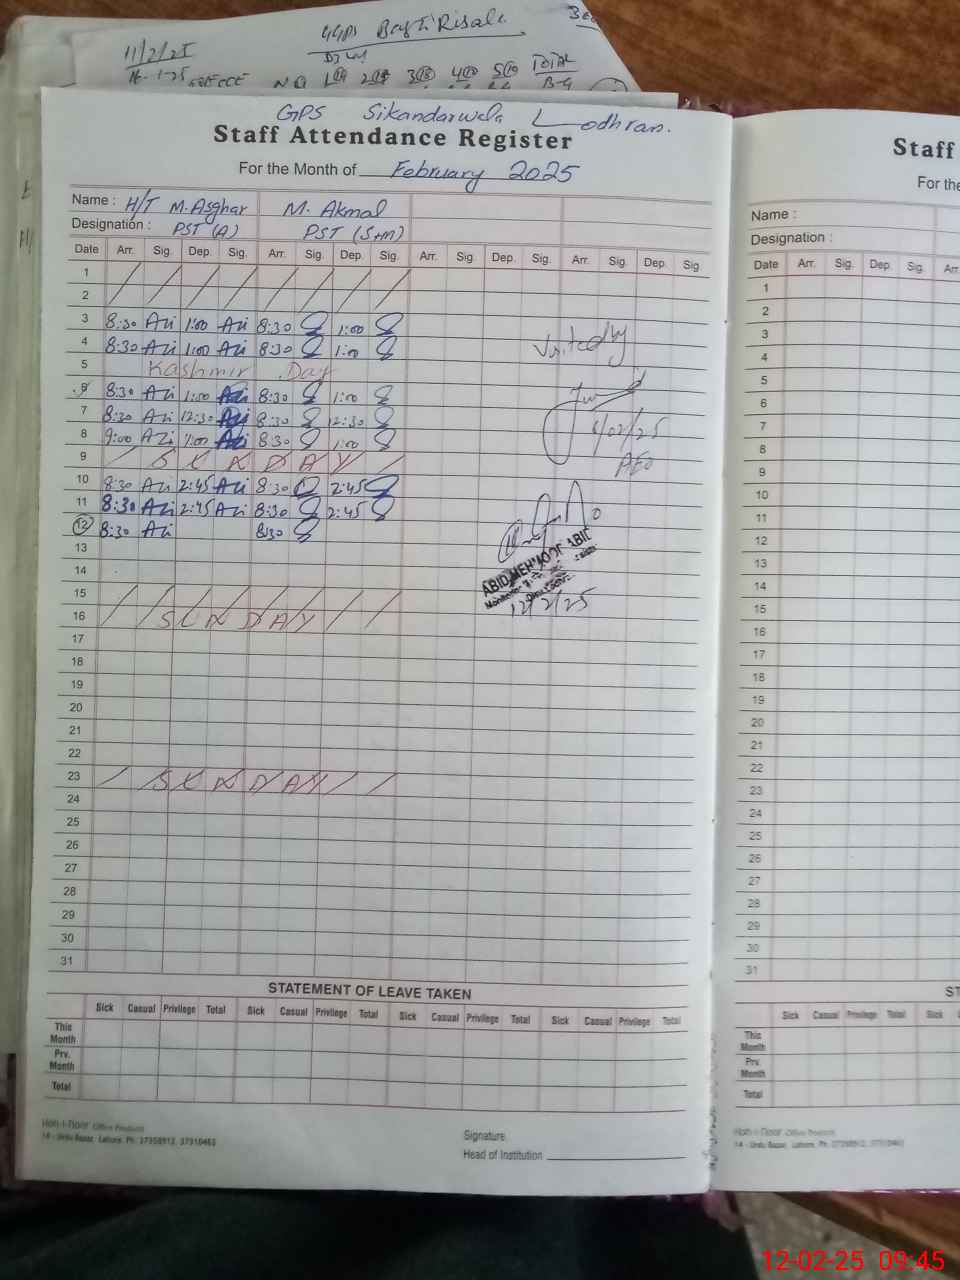 11/2/25 GGPS Basti Risala
1 2 3 4 5 Total
GPS Sikandarwala Lodhran.
Staff Attendance Register
For the Month of February 2025
Name : H/T M. Asghar M. Akmal
Designation : PST (A) PST (S+M)
Date Arr. Sig. Dep. Sig. Arr. Sig. Dep. Sig. Arr. Sig. Dep. Sig. Arr. Sig. Dep. Sig.
1
2
3 8:30 Ali 1:00 Ali 8:30 1:00
4 8:30 Ali 1:00 Ali 8:30 1:00
Visited by
5 Kashmir Day
6 8:30 Ali 1:00 Ali 8:30 1:00
7 8:30 Ali 12:30 Ali 8:30 12:30
6/02/25
8 9:00 Ali 1:00 Ali 8:30 1:00
AEO
9 SUNDAY
10 8:30 Ali 2:45 Ali 8:30 2:45
11 8:30 Ali 2:45 Ali 8:30 2:45
12 8:30 Ali 8:30
13
14
ABID MEHMOOD ABID
12/2/25
15
16 SUNDAY
17
18
19
20
21
22
23 SUNDAY
24
25
26
27
28
29
30
31
STATEMENT OF LEAVE TAKEN
Sick Casual Privilege Total Sick Casual Privilege Total Sick Casual Privilege Total Sick Casual Privilege Total
This Month
Prv. Month
Total
Office Products
14 - Urdu Bazar, Lahore. Ph: 37358912, 37310463
Signature
Head of Institution
Staff
For the
Name :
Designation :
Date Arr. Sig. Dep. Sig. Arr.
1
2
3
4
5
6
7
8
9
10
11
12
13
14
15
16
17
18
19
20
21
22
23
24
25
26
27
28
29
30
31
ST
Sick Casual Privilege Total Sick
This Month
Prv. Month
Total
14 - Urdu Bazar, Lahore. Ph: 37358912, 37310463
12-02-25 09:45